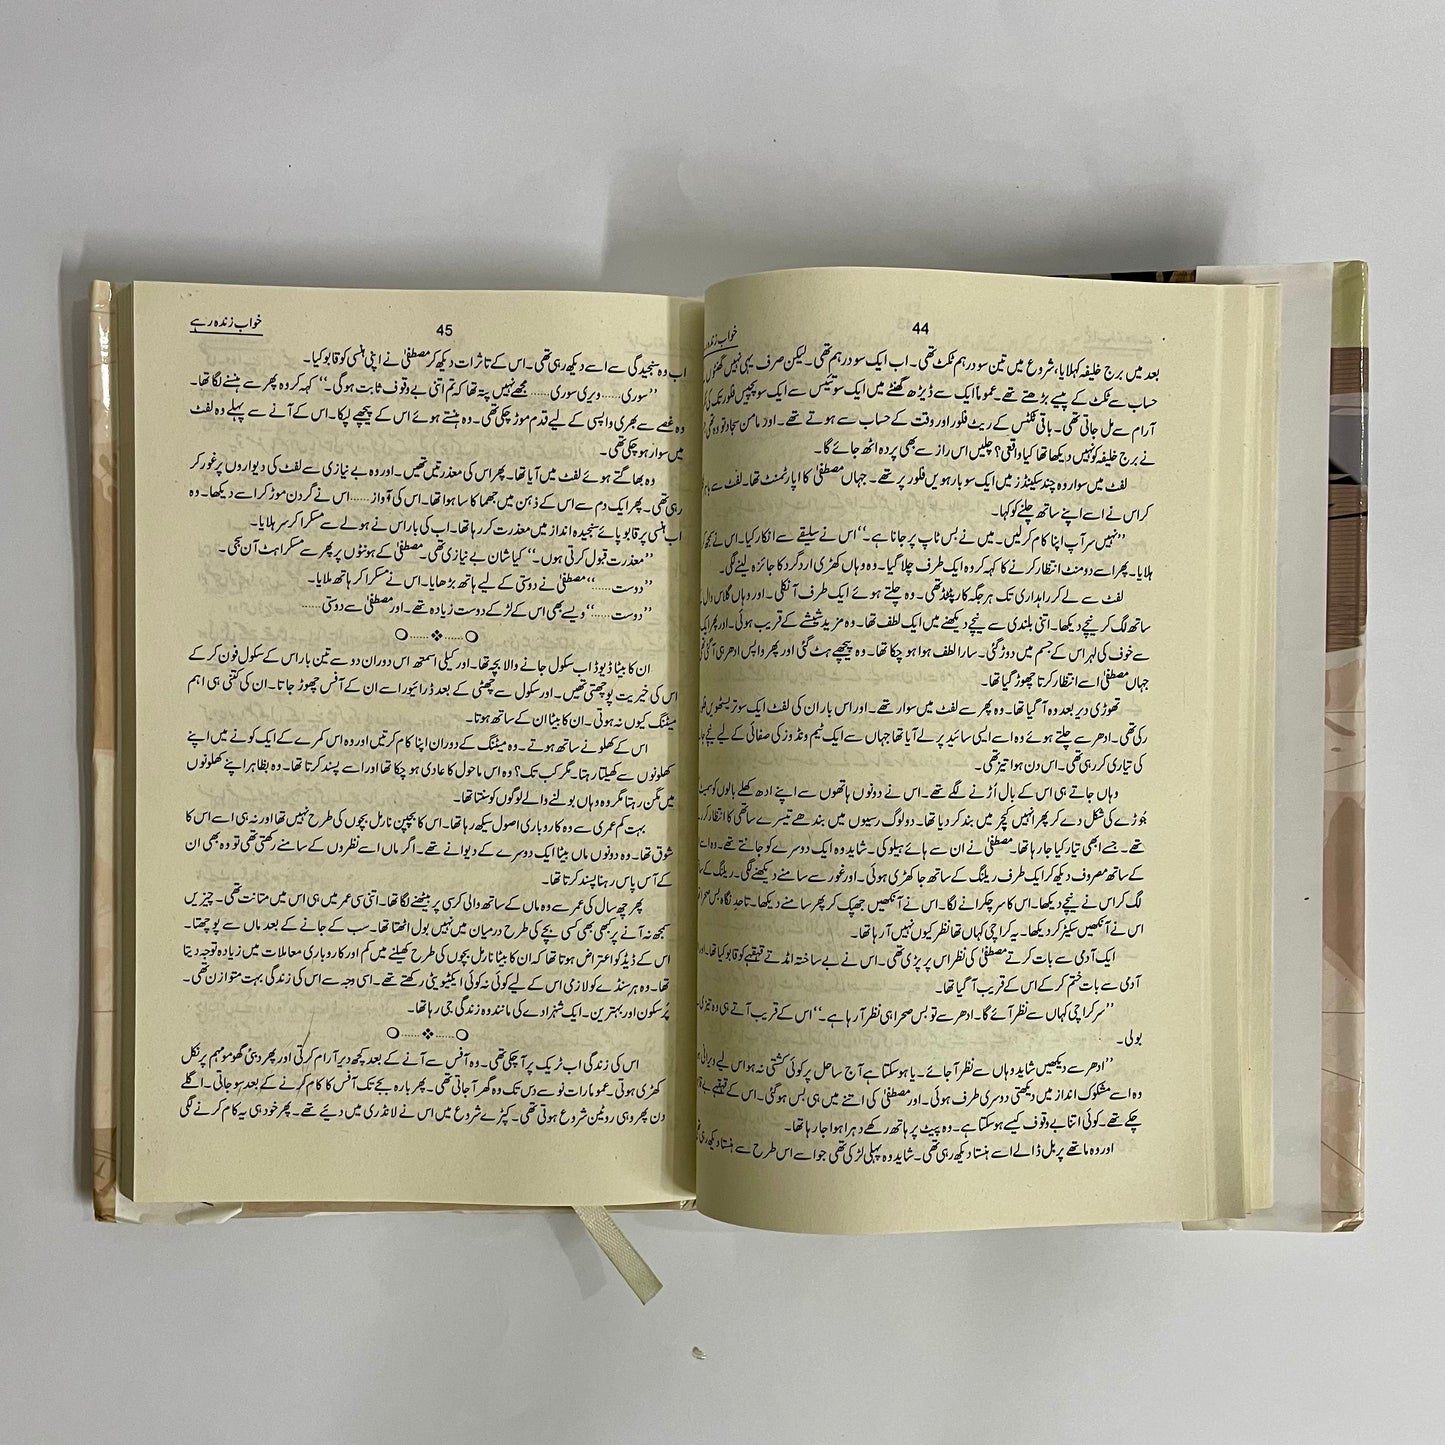 44
خواب زندہ ر
بعد میں برج خلیفہ کہلایا، شروع میں تین سو درہم ٹکٹ تھی۔ اب ایک سو درہم تھی۔ لیکن صرف یہی نہیں گھنٹوں
حساب سے ٹکٹ کے پیسے بڑھتے تھے۔ عموماً ایک سے ڈیڑھ گھنٹے میں ایک سو تئیس سے ایک سو پچیس فلور تک کی
آرام سے مل جاتی تھی۔ باقی ٹکٹس کے ریٹ فلور اور وقت کے حساب سے ہوتے تھے۔ اور مامن سجاد تو وہ تھی
نے برج خلیفہ کو نہیں دیکھا تھا کیا واقعی؟ چلیں اس راز سے بھی پردہ اٹھ جائے گا۔
لفٹ میں سوار وہ چند سیکنڈز میں ایک سو بارہویں فلور پر تھے۔ جہاں مصطفیٰ کا اپارٹمنٹ تھا۔ لفٹ سے باہر
کر اس نے اسے اپنے ساتھ چلنے کو کہا۔
”نہیں سر آپ اپنا کام کر لیں۔ میں نے بس ٹاپ پر جانا ہے۔“ اس نے سلیقے سے انکار کیا۔ اس نے کچھ
ہلایا۔ پھر اسے دو منٹ انتظار کرنے کا کہہ کر وہ ایک طرف چلا گیا۔ وہ وہاں کھڑی ارد گرد کا جائزہ لینے لگی۔
لفٹ سے لے کر راہداری تک ہر جگہ کارپٹڈ تھی۔ وہ چلتے ہوئے ایک طرف آ نکلی۔ اور وہاں گلاس وال
ساتھ لگ کر نیچے دیکھا۔ اتنی بلندی سے نیچے دیکھنے میں ایک لطف تھا۔ وہ مزید شیشے کے قریب ہوئی۔ اور پھر ایک
سے خوف کی لہر اس کے جسم میں دوڑ گئی۔ سارا لطف ہوا ہو چکا تھا۔ وہ پیچھے ہٹ گئی اور پھر واپس ادھر ہی آ گئی
جہاں مصطفیٰ اسے انتظار کرتا چھوڑ گیا تھا۔
تھوڑی دیر بعد وہ آ گیا تھا۔ وہ پھر سے لفٹ میں سوار تھے۔ اور اس بار ان کی لفٹ ایک سو تریسٹھویں
رکی تھی۔ ادھر سے چلتے ہوئے وہ اسے ایسی سائیڈ پر لے آیا تھا جہاں سے ایک ٹیم ونڈوز کی صفائی کے لیے نیچے
کی تیاری کر رہی تھی۔ اس دن ہوا تیز تھی۔
وہاں جاتے ہی اس کے بال اُڑنے لگے تھے۔ اس نے دونوں ہاتھوں سے اپنے ادھ کھلے بالوں کو سمیٹ
جُوڑے کی شکل دے کر پھر انہیں کیچر میں بند کر دیا تھا۔ دو لوگ رسیوں میں بندھے تیسرے ساتھی کا انتظار کر
تھے۔ جسے ابھی تیار کیا جا رہا تھا۔ مصطفیٰ نے ان سے ہائے ہیلو کی۔ شاید وہ ایک دوسرے کو جانتے تھے۔ وہ اسے
کے ساتھ مصروف دیکھ کر ایک طرف ریلنگ کے ساتھ جا کھڑی ہوئی۔ اور غور سے سامنے دیکھنے لگی۔ ریلنگ کے
لگ کر اس نے نیچے دیکھا۔ اس کا سر چکرانے لگا۔ اس نے آنکھیں جھپک کر پھر سامنے دیکھا۔ تاحد نگاہ بس صحرا
اس نے آنکھیں سکیٹر کر دیکھا۔ یہ کراچی کہاں تھا نظر کیوں نہیں آ رہا تھا۔
ایک آدمی سے بات کرتے مصطفیٰ کی نظر اس پر پڑی تھی۔ اس نے بے ساختہ امڈتے قہقہے کو قابو کیا تھا۔ اور
آدمی سے بات ختم کر کے اس کے قریب آ گیا تھا۔
”سر کراچی کہاں سے نظر آئے گا۔ ادھر سے تو بس صحرا ہی نظر آ رہا ہے۔“ اس کے قریب آتے ہی وہ تیزی
بولی۔
”ادھر سے دیکھیں شاید وہاں سے نظر آ جائے۔ یا ہو سکتا ہے آج ساحل پر کوئی کشتی نہ ہو اس لیے ویرانی
وہ اسے مشکوک انداز میں دیکھتی دوسری طرف ہوئی۔ اور مصطفیٰ کی اتنے میں ہی بس ہو گئی۔ اس کے قہقہے بے
چکے تھے۔ کوئی اتنا بے وقوف کیسے ہو سکتا ہے۔ وہ پیٹ پر ہاتھ رکھے دہرا ہوا جا رہا تھا۔
اور وہ ماتھے پر بل ڈالے اسے ہنستا دیکھ رہی تھی۔ شاید وہ پہلی لڑکی تھی جو اسے اس طرح سے ہنستا دیکھ رہی
45
خواب زندہ رہے
اب وہ سنجیدگی سے اسے دیکھ رہی تھی۔ اس کے تاثرات دیکھ کر مصطفیٰ نے اپنی ہنسی کو قابو کیا۔
”سوری...... ویری سوری...... مجھے نہیں پتہ تھا کہ تم اتنی بے وقوف ثابت ہو گی۔“ کہہ کر وہ پھر سے ہنسنے لگا تھا۔
وہ غصے سے بھری واپسی کے لیے قدم موڑ چکی تھی۔ وہ ہنستے ہوئے اس کے پیچھے لپکا۔ اس کے آنے سے پہلے وہ لفٹ
میں سوار ہو چکی تھی۔
وہ بھاگتے ہوئے لفٹ میں آیا تھا۔ پھر اس کی معذرتیں تھیں۔ اور وہ بے نیازی سے لفٹ کی دیواروں پر غور کر
رہی تھی۔ پھر ایک دم سے اس کے ذہن میں جھماکا سا ہوا تھا۔ اس کی آواز...... اس نے گردن موڑ کر اسے دیکھا۔ وہ
اب ہنسی پر قابو پائے سنجیدہ انداز میں معذرت کر رہا تھا۔ اب کی بار اس نے ہولے سے مسکرا کر سر ہلایا۔
”معذرت قبول کرتی ہوں۔“ کیا شان بے نیازی تھی۔ مصطفیٰ کے ہونٹوں پر پھر سے مسکراہٹ آن سجی۔
”دوست......“ مصطفیٰ نے دوستی کے لیے ہاتھ بڑھایا۔ اس نے مسکرا کر ہاتھ ملایا۔
”دوست......“ ویسے بھی اس کے لڑکے دوست زیادہ تھے۔ اور مصطفیٰ سے دوستی......
ان کا بیٹا ڈیوڈ اب سکول جانے والا بچہ تھا۔ اور کیلی اسمتھ اس دوران دو سے تین بار اس کے سکول فون کر کے
اس کی خیریت پوچھتی تھیں۔ اور سکول سے چھٹی کے بعد ڈرائیور اسے ان کے آفس چھوڑ جاتا۔ ان کی کتنی ہی اہم
میٹنگ کیوں نہ ہوتی۔ ان کا بیٹا ان کے ساتھ ہوتا۔
اس کے کھلونے ساتھ ہوتے۔ وہ میٹنگ کے دوران اپنا کام کرتیں اور وہ اس کمرے کے ایک کونے میں اپنے
کھلونوں سے کھیلتا رہتا۔ مگر کب تک؟ وہ اس ماحول کا عادی ہو چکا تھا اور اسے پسند کرتا تھا۔ وہ بظاہر اپنے کھلونوں
میں مگن رہتا مگر وہ وہاں بولنے والے لوگوں کو سنتا تھا۔
بہت کم عمری سے وہ کاروباری اصول سیکھ رہا تھا۔ اس کا بچپن نارمل بچوں کی طرح نہیں تھا اور نہ ہی اسے اس کا
شوق تھا۔ وہ دونوں ماں بیٹا ایک دوسرے کے دیوانے تھے۔ اگر ماں اسے نظروں کے سامنے رکھتی تھی تو وہ بھی ان
کے آس پاس رہنا پسند کرتا تھا۔
پھر چھ سال کی عمر سے وہ ماں کے ساتھ والی کرسی پر بیٹھنے لگا تھا۔ اتنی سی عمر میں ہی اس میں متانت تھی۔ چیزیں
سمجھ نہ آنے پر بھی کبھی کسی بچے کی طرح درمیان میں نہیں بول اٹھتا تھا۔ سب کے جانے کے بعد ماں سے پوچھتا۔
اس کے ڈیڈ کو اعتراض ہوتا تھا کہ ان کا بیٹا نارمل بچوں کی طرح کھیلنے میں کم اور کاروباری معاملات میں زیادہ توجہ دیتا
تھا۔ وہ ہر سنڈے کو لازمی اس کے لیے کوئی نہ کوئی ایکٹیویٹی رکھتے تھے۔ اسی وجہ سے اس کی زندگی بہت متوازن تھی۔
پُرسکون اور بہترین۔ ایک شہزادے کی مانند وہ زندگی جی رہا تھا۔
اس کی زندگی اب ٹریک پر آ چکی تھی۔ وہ آفس سے آنے کے بعد کچھ دیر آرام کرتی اور پھر دبئی گھومو مہم پر نکل
کھڑی ہوتی۔ عموماً رات نو سے دس تک وہ گھر آ جاتی تھی۔ پھر بارہ بجے تک آفس کا کام کرنے کے بعد سو جاتی۔ اگلے
دن پھر وہی روٹین شروع ہوتی تھی۔ کپڑے شروع میں اس نے لانڈری میں دیئے تھے۔ پھر خود ہی یہ کام کرنے لگی